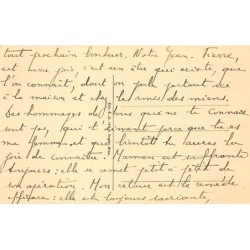 tout prochain bonheur. Notre Jean-Pierre,
est une joie, c'est un être qui existe, que
l'on connaît, dont on parle partout ici
à la maison et chez les amis des miens.
Ses hommages de tous qui ne te connaissent
ont pas, qui t'aiment parce que tu es
ma femme et que bientôt tu auras la
joie de connaître. Maman est souffrante
toujours : elle se remet petit à petit de
son opération. Mon retour est le remède
efficace : elle est toujours souriante,